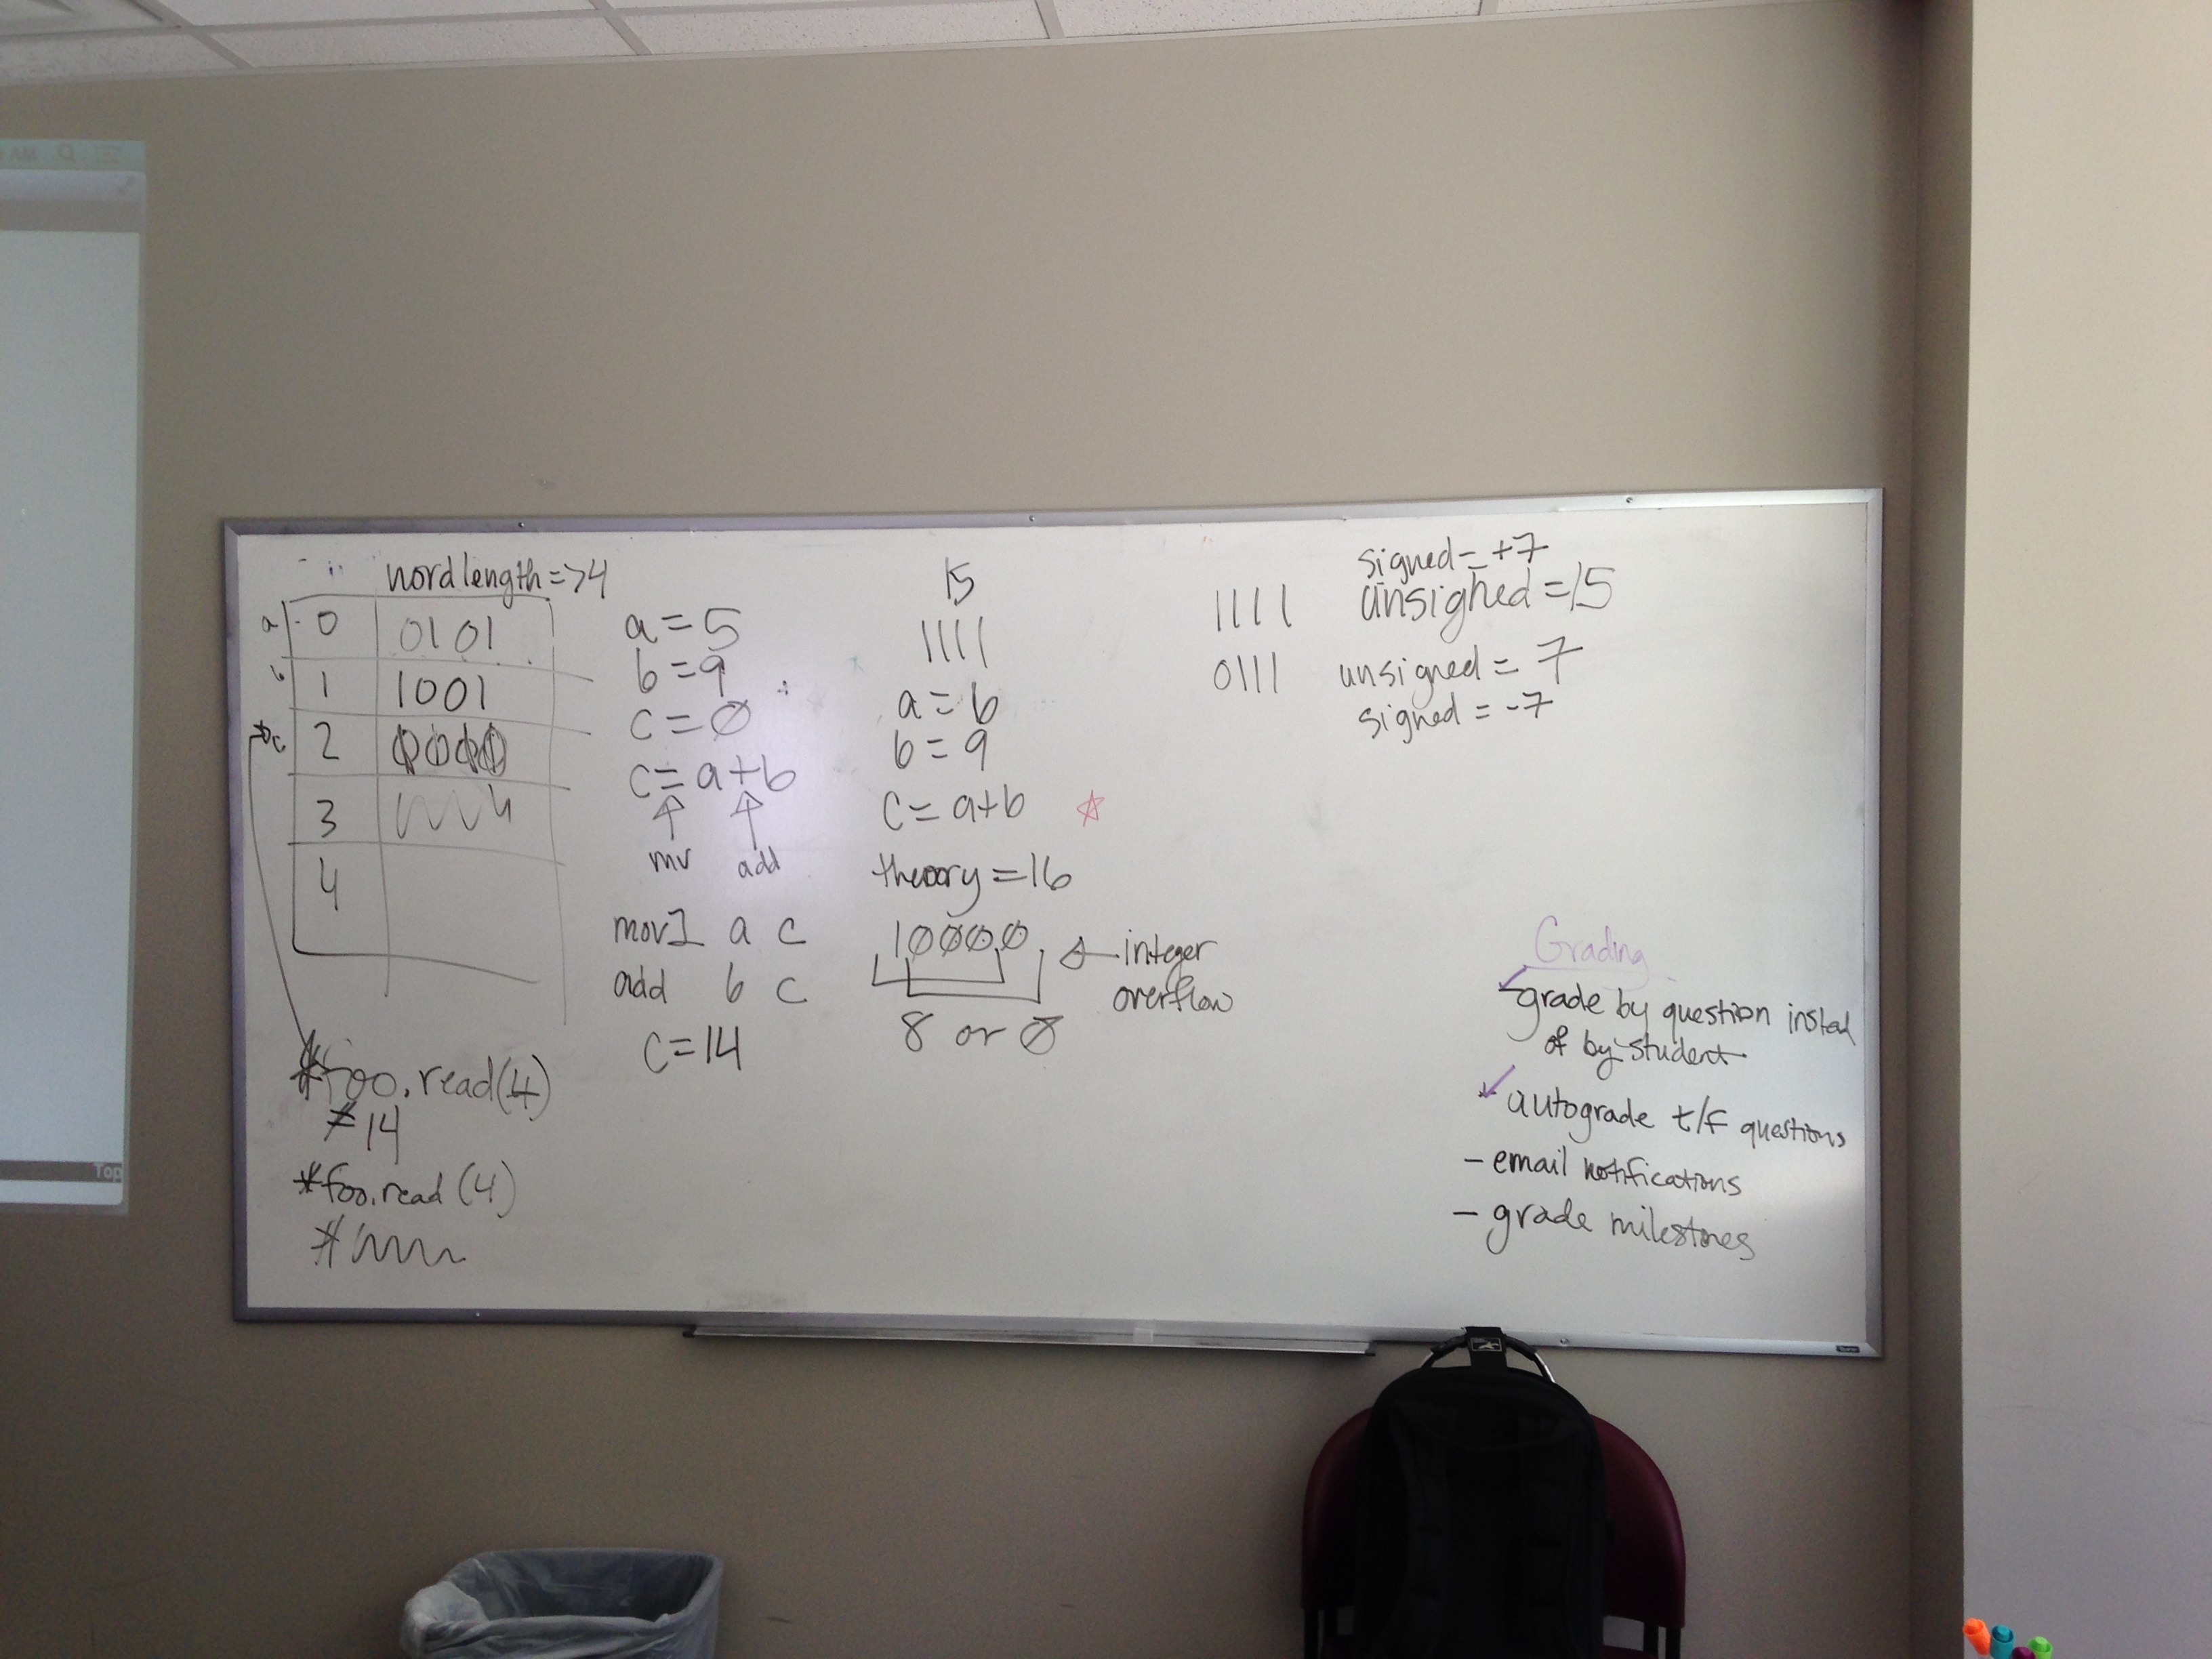 word length => 4
a 0 0101
b 1 1001
c 2
3
4
*foo.read(4)
≠14
*foo.read(4)
a=5
b=9
c=Ø
c=a+b
mv add
movl a c
add b c
c=14
15
1111
a=6
b=9
c=a+b
theory=16
1ØØØØ
integer
overflow
8 or Ø
signed=+7
1111 unsigned=15
0111 unsigned=7
signed=-7
Grading
grade by question insted
of by student
autograde t/f questions
- email notifications
- grade milestones
AM
Top